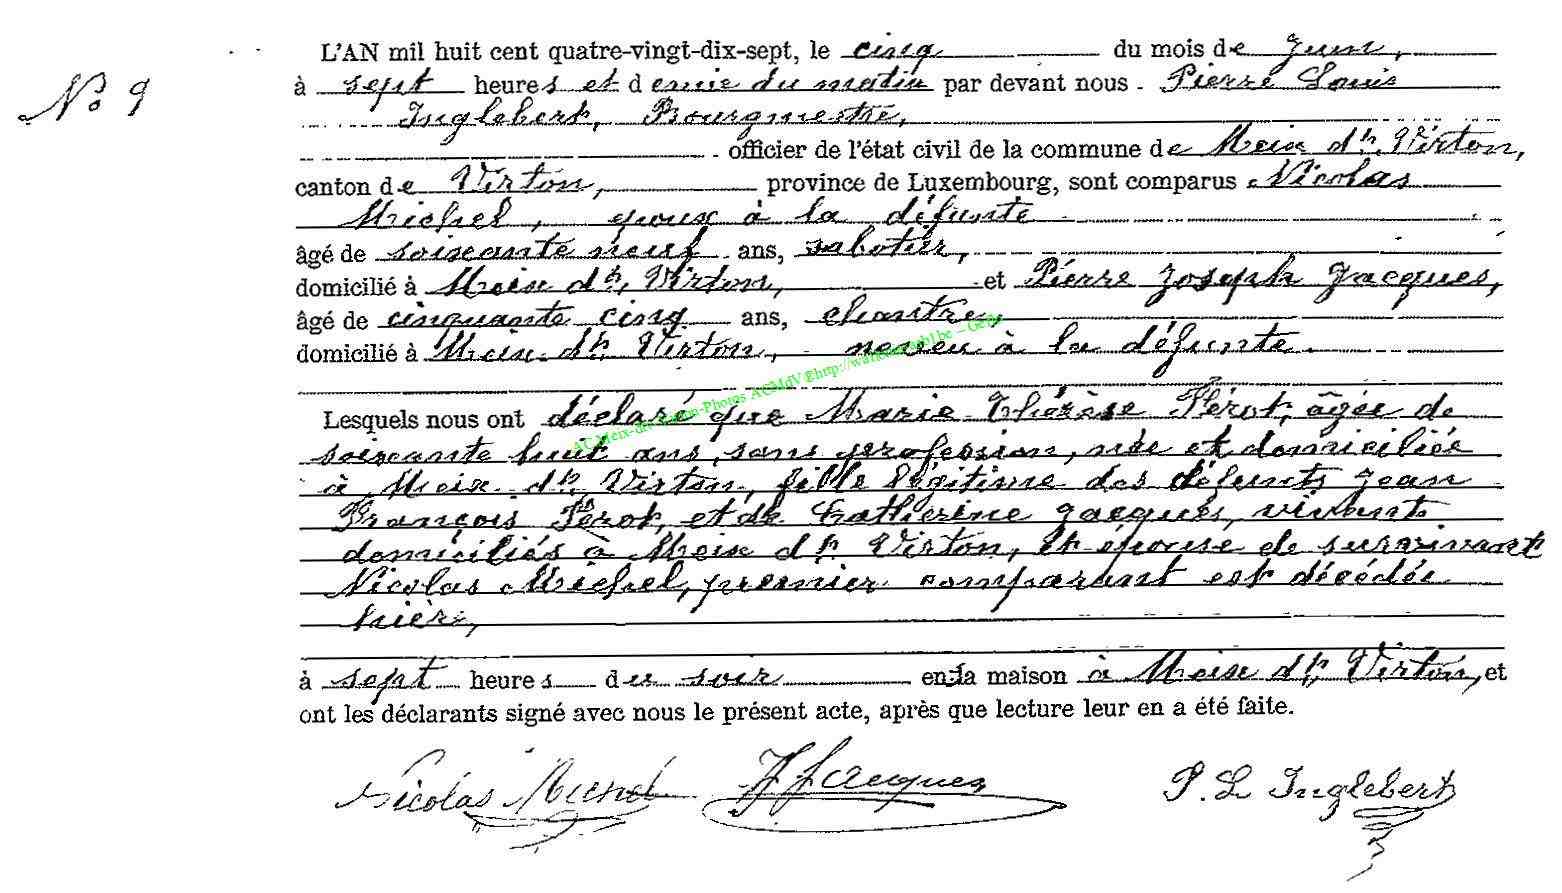 N° 9
L'AN mil huit cent quatre-vingt-dix-sept, le cinq du mois de Juin,
à sept heures et demie du matin par devant nous Pierre Louis
Inglebert, Bourgmestre,
officier de l'état civil de la commune de Meix dt Virton,
canton de Virton, province de Luxembourg, sont comparus Nicolas
Michel, époux à la défunte
âgé de soixante neuf ans, sabotier,
domicilié à Meix dt Virton, et Pierre Joseph Jacques,
âgé de cinquante cinq ans, chantre,
domicilié à Meix dt Virton, neveu à la défunte.
Lesquels nous ont déclaré que Marie Thérèse Pérot, âgée de
soixante huit ans, sans profession, née et domiciliée
à Meix dt Virton, fille légitime des défunts Jean
François Pérot, et de Catherine Jacques, vivants
domiciliés à Meix dt Virton, et épouse de survivant
Nicolas Michel, premier comparant est décédée
hière,
à sept heures du soir en la maison à Meix dt Virton, et
ont les déclarants signé avec nous le présent acte, après que lecture leur en a été faite.
Nicolas Michel JJacques P. L Inglebert